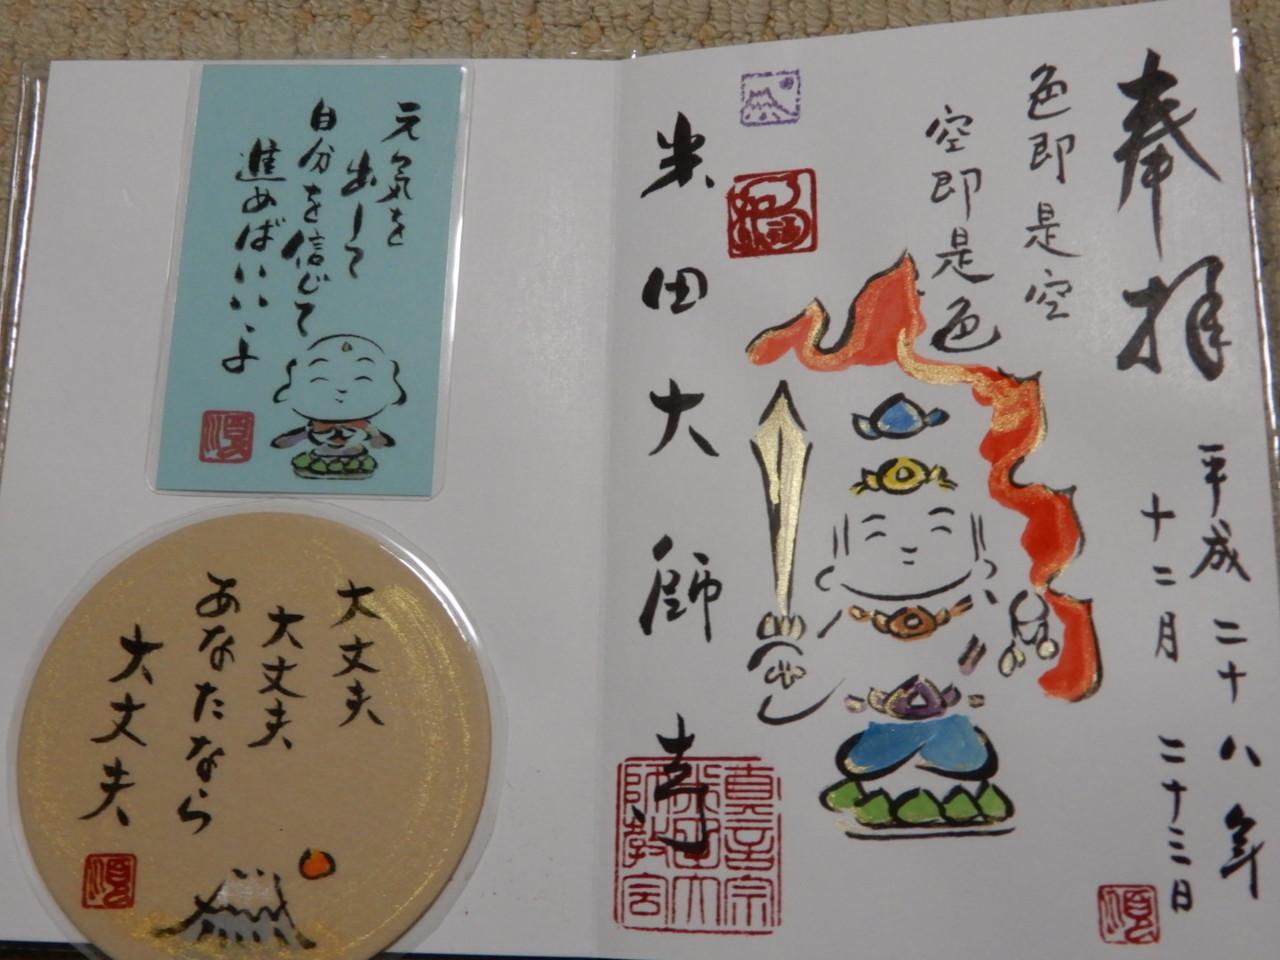 奉拝
平成二十八年
十二月二十三日
色即是空
空即是色
米田大師寺
元気を
出して
自分を信じて
進めばいいよ
大丈夫
大丈夫
あなたなら
大丈夫